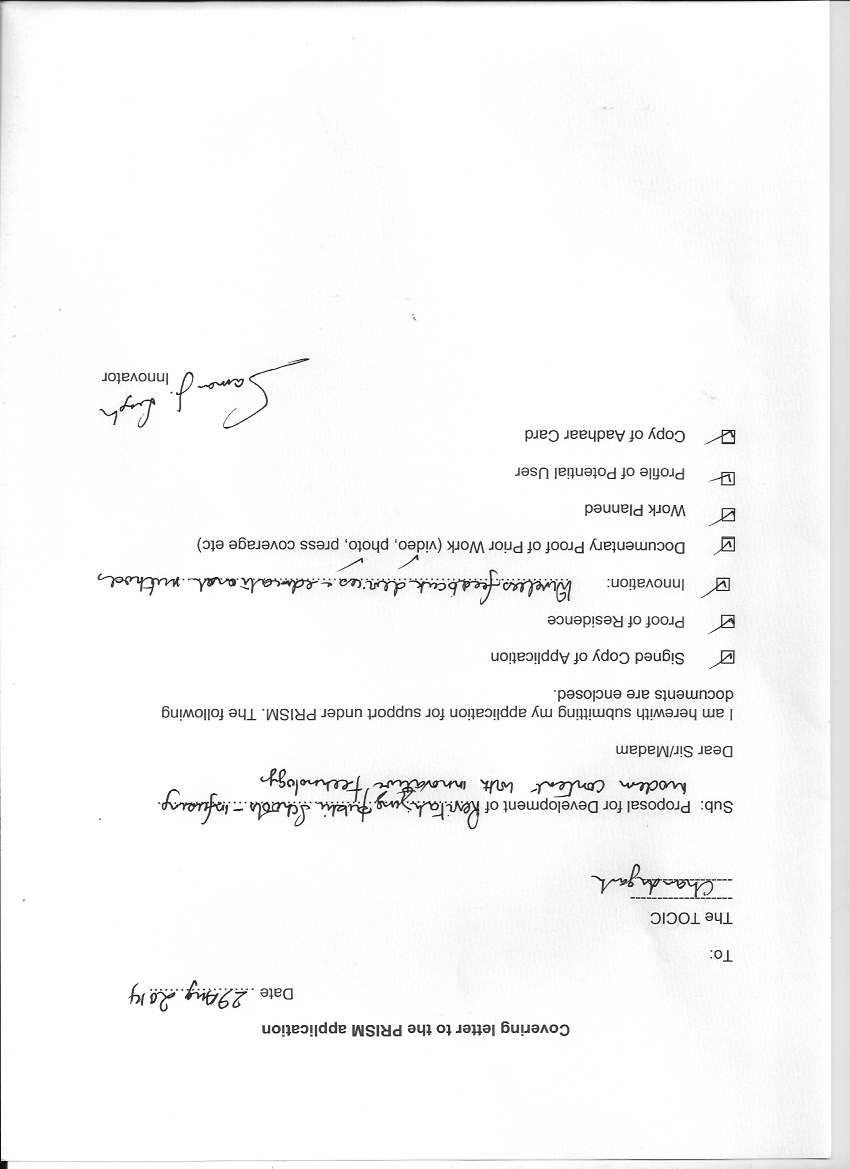 Covering letter to the PRISM application
Date 29 Aug 2014
To:
The TOCIC
Chandigarh
Sub: Proposal for Development of Revitalizing public Schools – infusing
modern content with innovative technology
Dear Sir/Madam
I am herewith submitting my application for support under PRISM. The following
documents are enclosed.
Signed Copy of Application
Proof of Residence
Innovation: Wireless feedback devices & educational methods
Documentary Proof of Prior Work (video, photo, press coverage etc)
Work Planned
Profile of Potential User
Copy of Aadhaar Card
Saman J. Singh
Innovator